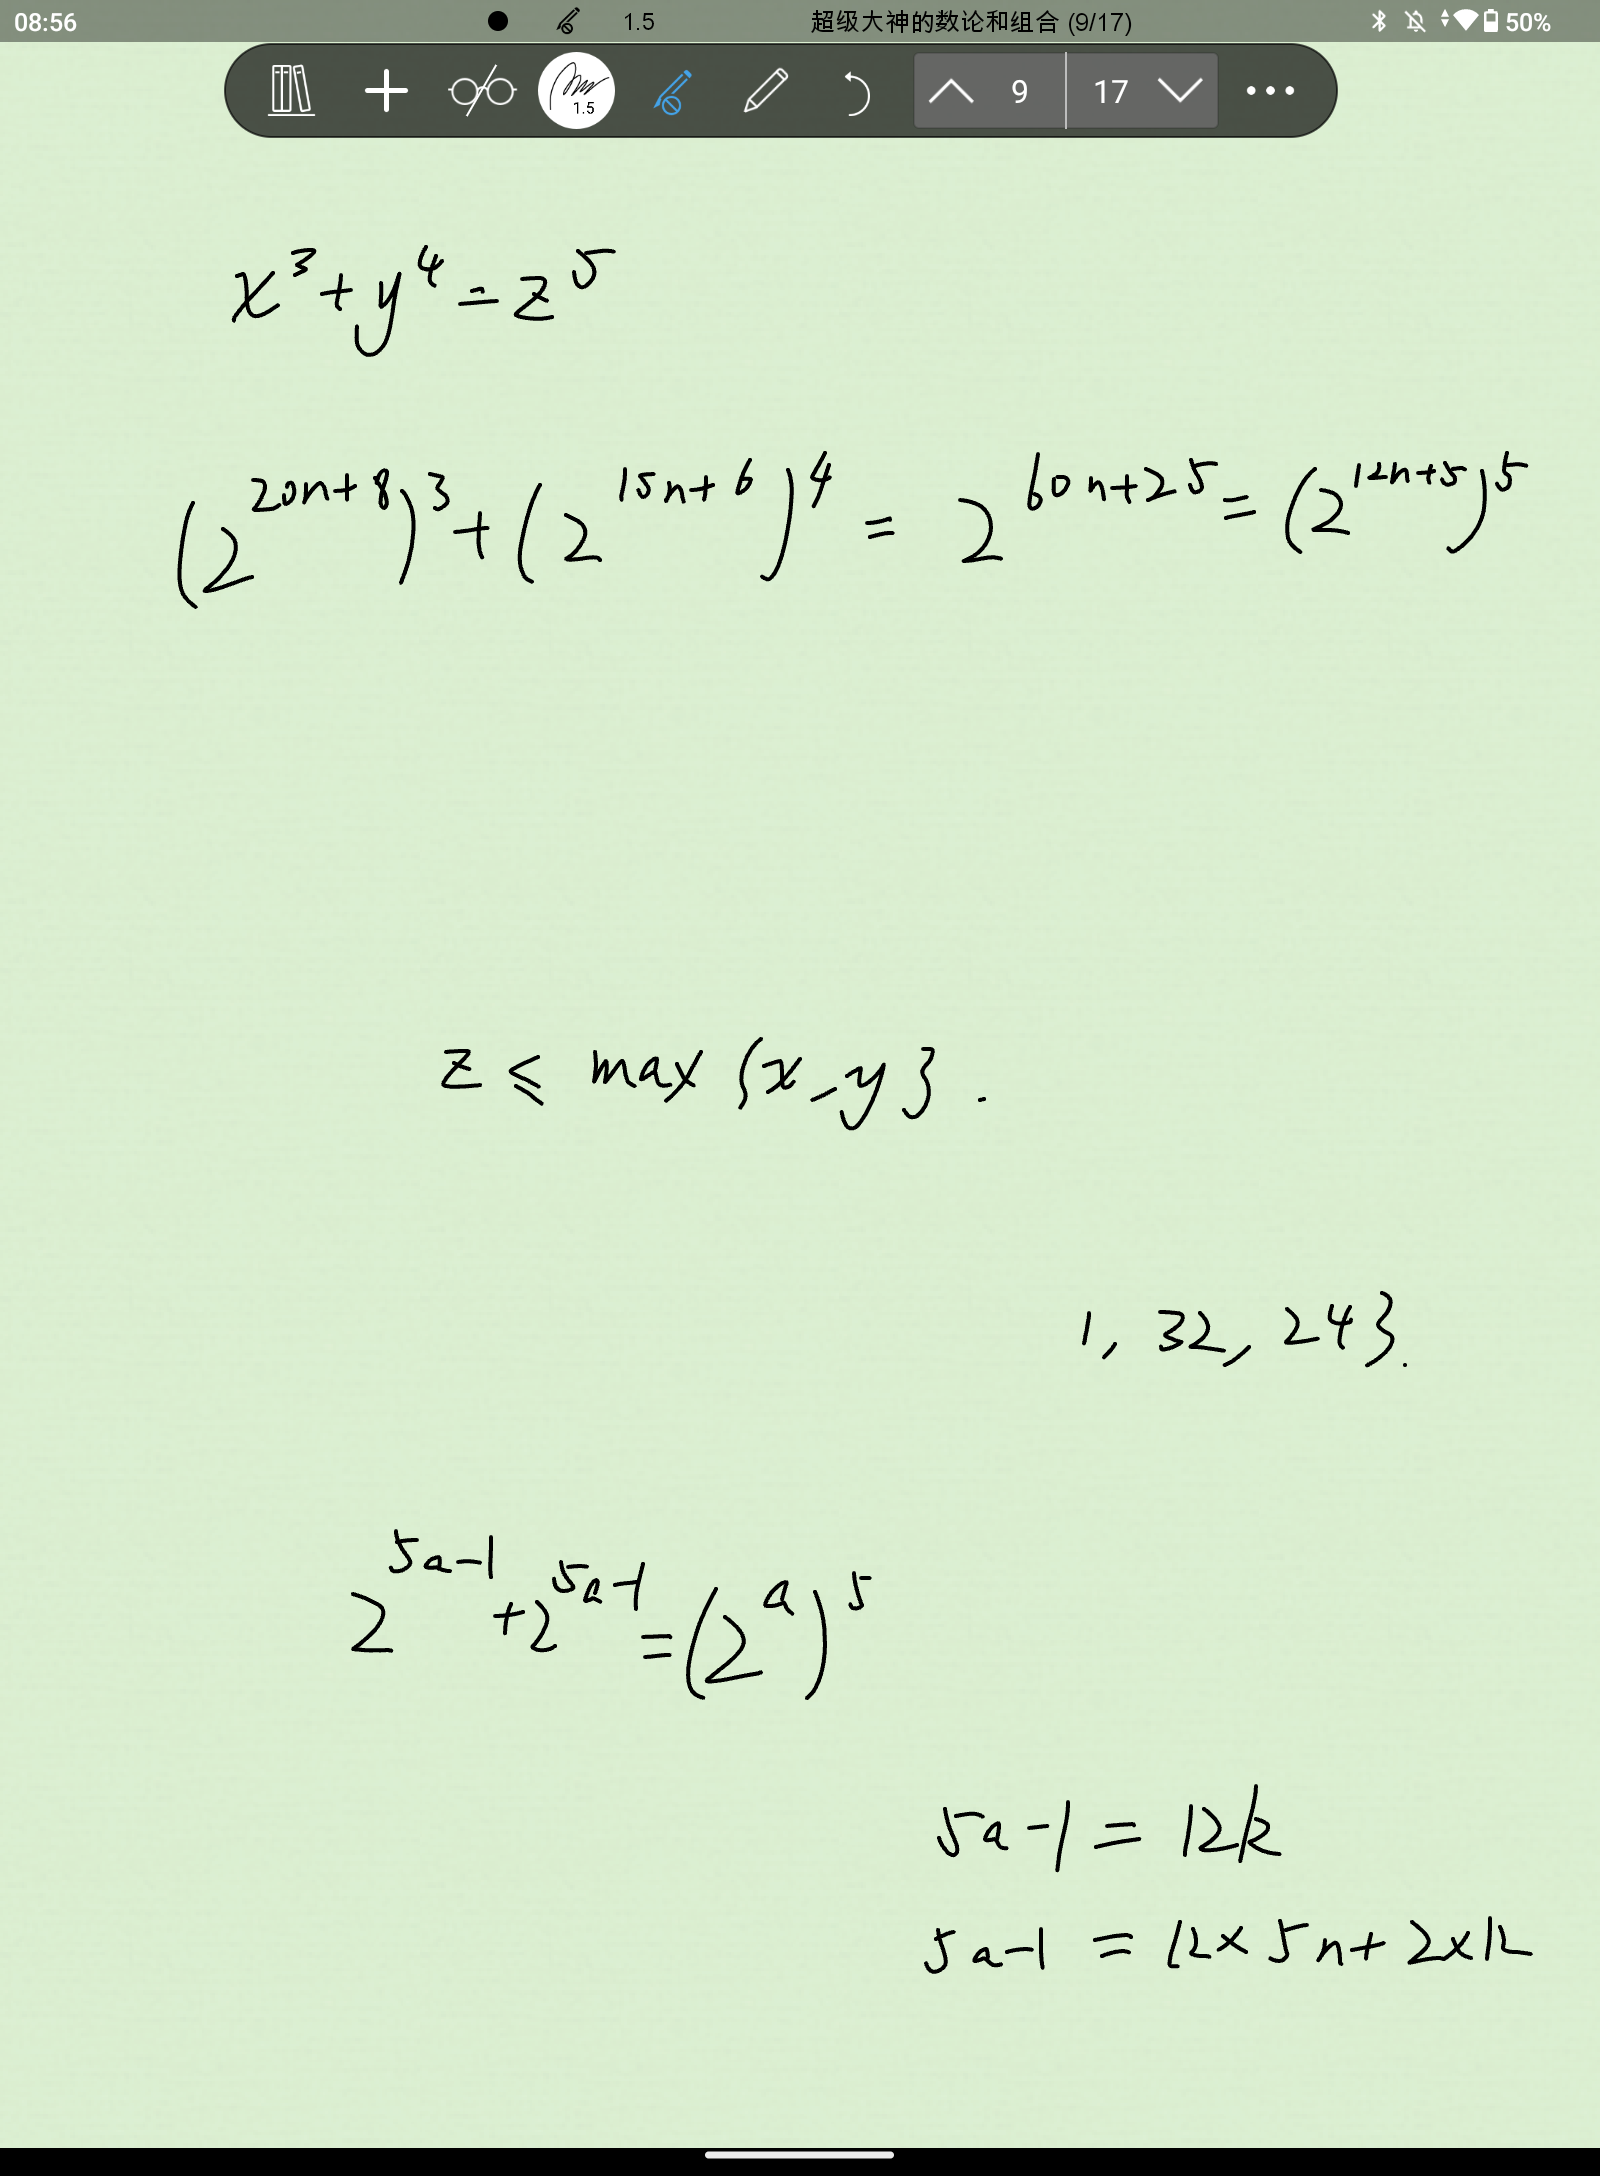 08:56 1.5 超级大神的数论和组合 (9/17) 50%
1.5 9 17
x³+y⁴=z⁵
(2^{20n+8})³+(2^{15n+6})⁴=2^{60n+25}=(2^{12n+5})⁵
z≤max{x,y}.
1, 32, 24}.
2^{5a-1}+2^{5a-1}=(2^a)⁵
5a-1=12k
5a-1=12×5n+2×12